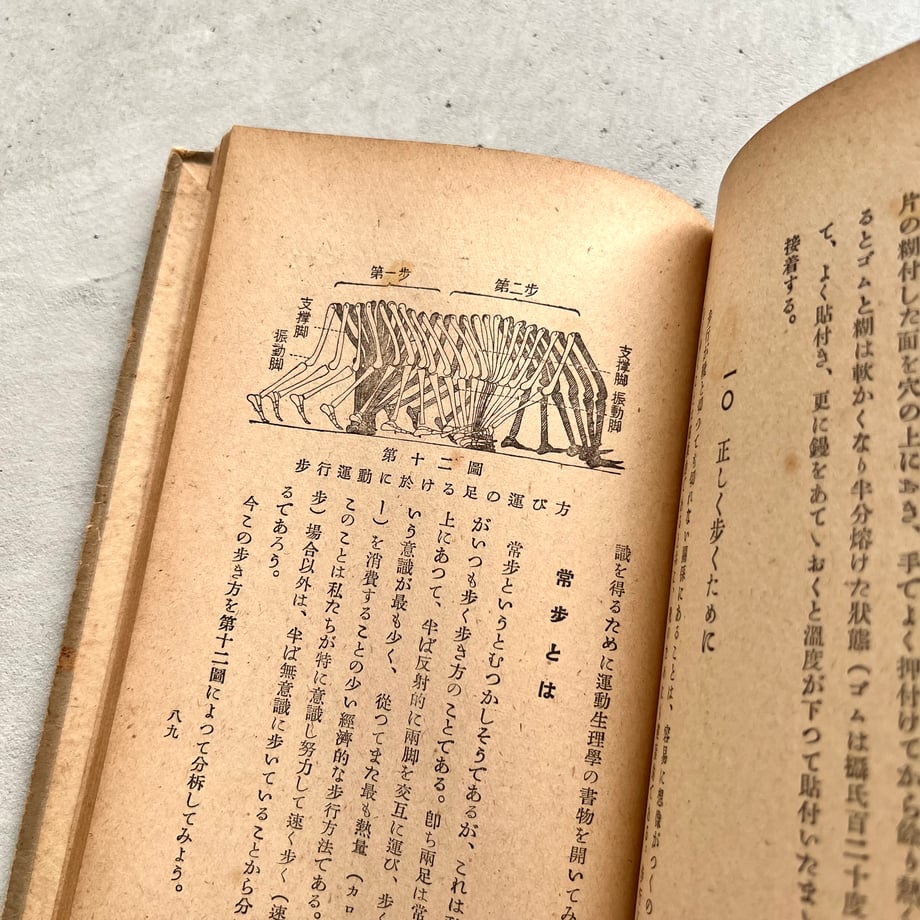 片の糊付した面を穴の上におき、手でよく押付けてから
るとゴムと糊は軟かくなり半分熔けた狀態（ゴムは攝氏百二十度
て、よく貼付き、更に鏝をあてゝおくと溫度が下つて貼付いたま
接着する。
一〇 正しく步くために
關係にあることは、容易に想像がつくの
第一步
第二步
支撐脚
振動脚
支撐脚
振動脚
第十二圖
步行運動に於ける足の運び方
識を得るために運動生理學の書物を開いてみ
常步とは
常步というとむつかしそうであるが、これは
がいつも步く步き方のことてある。卽ち兩足は常
上にあつて、半ば反射的に兩脚を交互に運び、步く
いう意識が最も少く、從つてまた最も熱量（カロ
ー）を消費することの少い經濟的な步行方法である。
このことは私たちが特に意識し努力して速く步く（速
步）場合以外は、半ば無意識に步いていることから分
るであろう。
今この步き方を第十二圖によつて分析してみよう。
八九